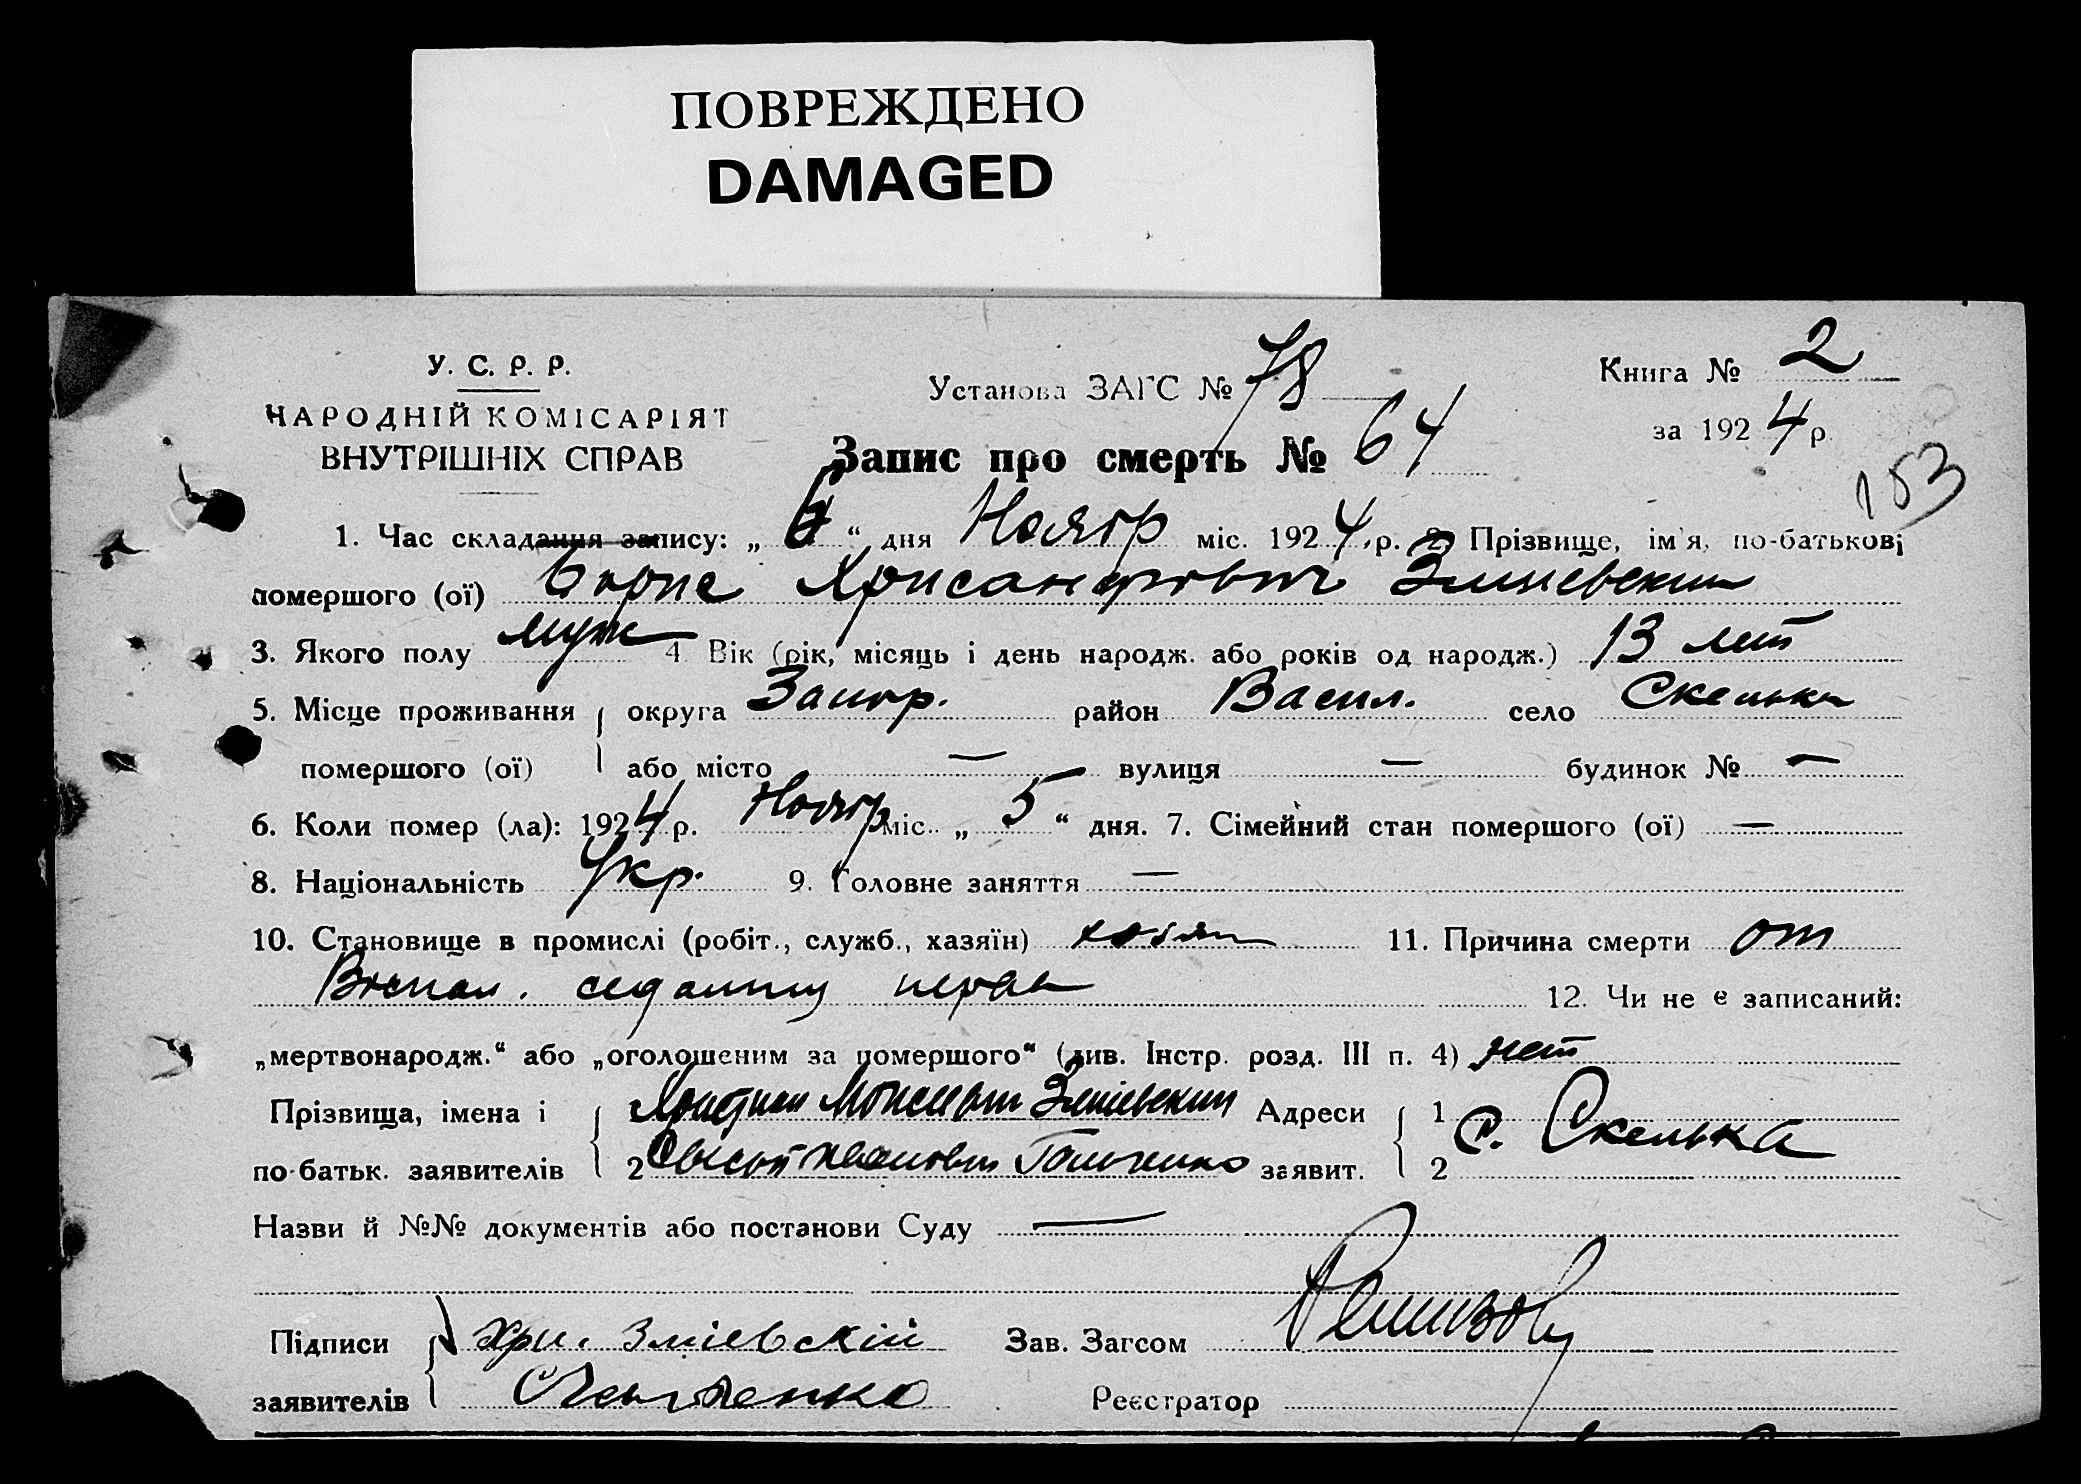 ПОВРЕЖДЕНО
DAMAGED
У. С. Р. Р.
НАРОДНІЙ КОМІСАРІЯТ
ВНУТРІШНІХ СПРАВ
Установа ЗАГС № 78
Книга № 2
за 1924 р.
Запис про смерть № 64
153
1. Час складання запису: „ 6 “ дня Ноябр міс. 1924 р. 2. Прізвище, ім'я, по-батькові
помершого (ої) Борис Хрисанфович Змиевский
3. Якого полу муж 4. Вік (рік, місяць і день народж. або років од народж.) 13 лет
5. Місце проживання округа Запор. район Васил. село Скелька
помершого (ої) або місто — вулиця — будинок № —
6. Коли помер (ла): 1924 р. Ноябр міс. „ 5 “ дня. 7. Сімейний стан помершого (ої) —
8. Національність Укр. 9. Головне заняття —
10. Становище в промислі (робіт., служб., хазяїн) хозяин 11. Причина смерти от
Воспал. 12. Чи не є записаний:
„мертвонародж.“ або „оголошеним за помершого“ (див. Інстр. розд. III п. 4) нет
Прізвища, імена і 1 Змиевский Адреси 1 с. Скелька
по-батьк. заявителів 2 заявит. 2
Назви й №№ документів або постанови Суду —
Підписи Хри. Зміевскій Зав. Загсом
заявителів Реєстратор